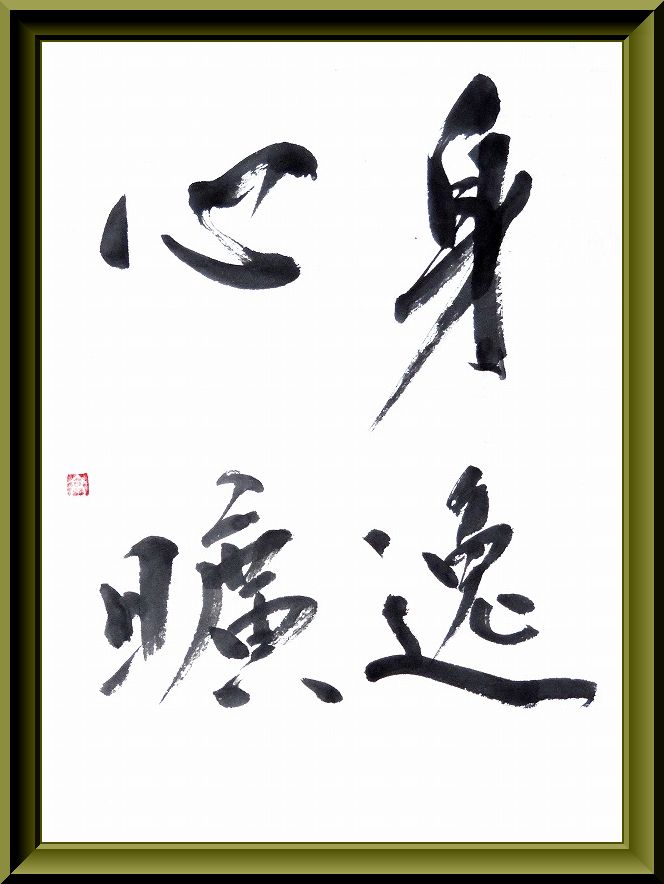 身逸
心曠